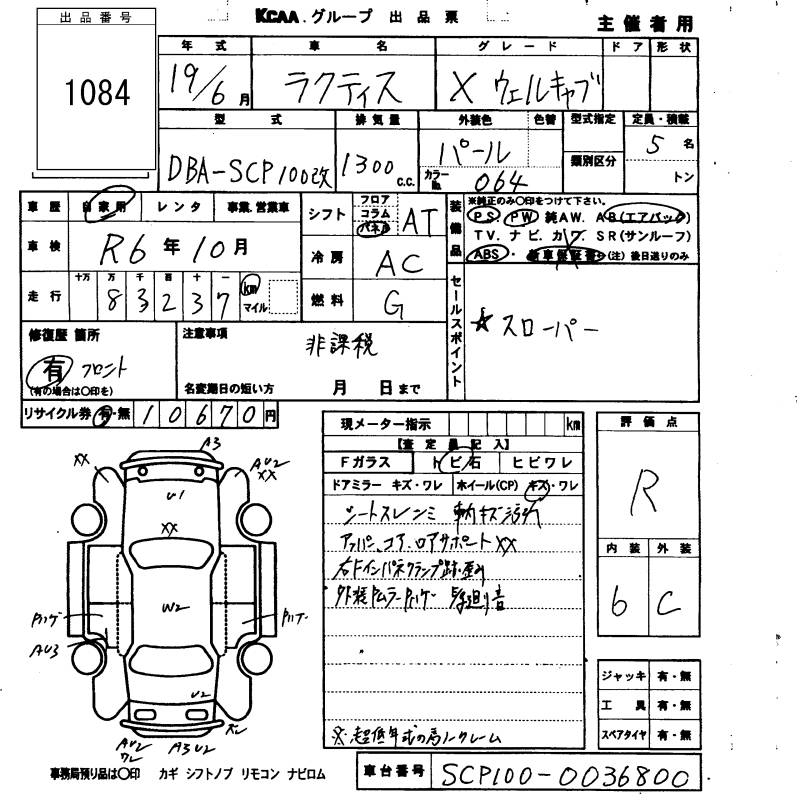 KCAA.グループ 出品票
主催者用
出品番号
1084
年式 車名 グレード ドア 形状
19/6月 ラクティス X ウェルキャブ
型式 排気量 外装色 色替 型式指定 定員・積載
DBA-SCP100改 1300c.c. パール 5名
カラーNo. 064 類別区分 トン
車歴 自家用 レンタ 事業.営業車
車検 R6年10月
走行 十万 万 千 百 十 一
83237 km マイル
シフト フロア コラム パネル AT
冷房 AC
燃料 G
装備品
※純正のみ〇印をつけて下さい。
PS PW 純AW. AB(エアバック)
TV. ナビ. カワ SR(サンルーフ)
ABS・新車保証書(注)後日送りのみ
セールスポイント
☆スローパー
修復歴 箇所
有 フロント
(有の場合は〇印を)
注意事項
非課税
名変期日の短い方 月 日まで
リサイクル券 有・無 10670円
現メーター指示 km
【査定員記入】
Fガラス トビ石 ヒビワレ
ドアミラー キズ・ワレ ホイール(CP) キズ・ワレ
シートスレシミ 車内キズ汚れ
アッパ、コア、ロアサポートXX
右Fインパネクランプ跡・歪み
※超低年式の為ノークレーム
評価点
R
内装 外装
6 C
ジャッキ 有・無
工具 有・無
スペアタイヤ 有・無
A3
XX
AU2
XX
U1
XX
W2
AU3
U2
AU2
ワレ
A3U2
事務局預り品は〇印 カギ シフトノブ リモコン ナビロム
車台番号 SCP100-0036800